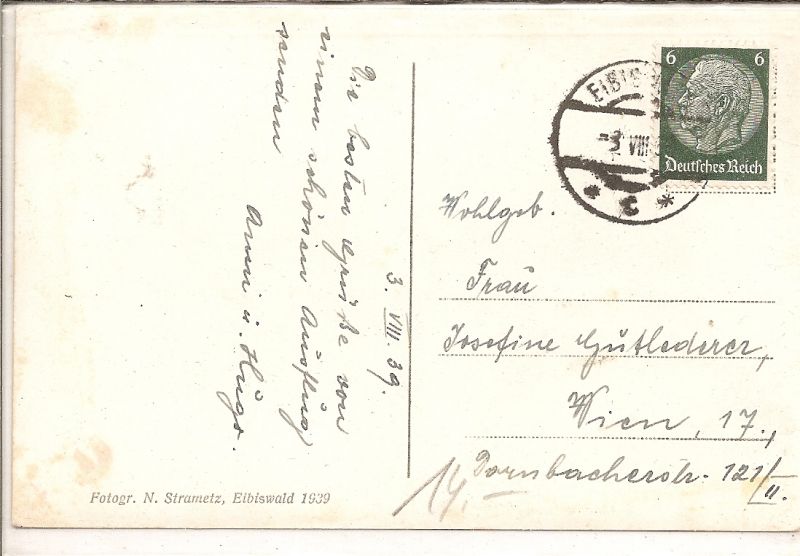 3. VIII. 39.
Die besten Grüße von
einem schönen Ausflug
senden
Anni u. Hugo.
Fotogr. N. Strametz, Eibiswald 1939
6 6
Deutsches Reich
EIBIS
-3. VIII
* C *
Wohlgeb.
Frau
Josefine Gutlederer,
Wien, 17.,
Dornbacherstr. 121/II.
14.-